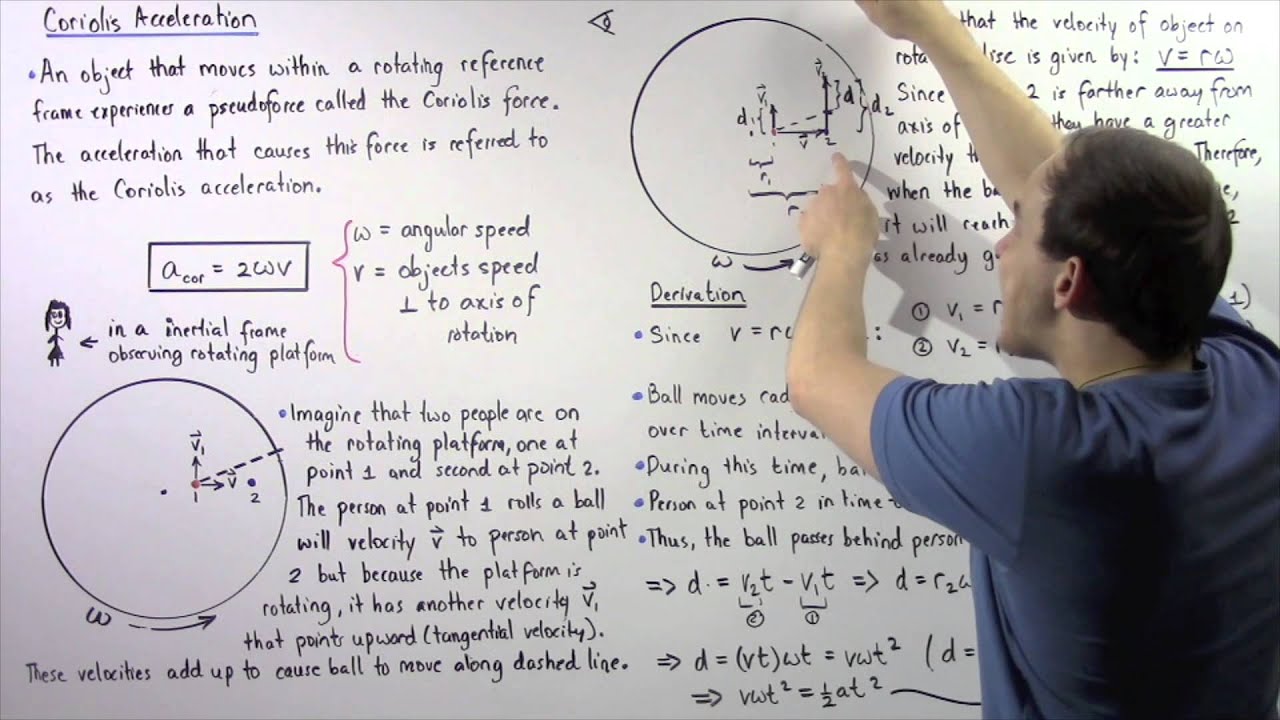 Coriolis Acceleration
• An object that moves within a rotating reference
frame experiences a pseudoforce called the Coriolis force.
The acceleration that causes this force is referred to
as the Coriolis acceleration.
a cor = 2ωv
ω = angular speed
v = objects speed
⊥ to axis of
rotation
← in a inertial frame
observing rotating platform
v⃗₁
v⃗
1
2
ω
• Imagine that two people are on
the rotating platform, one at
point 1 and second at point 2.
The person at point 1 rolls a ball
will velocity v⃗ to person at point
2 but because the platform is
rotating, it has another velocity v⃗₁
that points upward (tangential velocity).
These velocities add up to cause ball to move along dashed line.
v⃗₁
d₁
v⃗
d
d₂
2
r₁
r
ω
that the velocity of object on
is given by: v = rω
Since 2 is farther away from
axis of they have a greater
velocity Therefore,
when the
it will reach 2
as already
Derivation
• Since v = :
① v₁ =
② v₂ =
• Ball moves
over time
• During this time,
• Person at point 2 in time
• Thus, the ball passes behind person
=> d = v₂t - v₁t => d = r₂
② ①
=> d = (vt)ωt = vωt² (d =
=> vωt² = ½at²